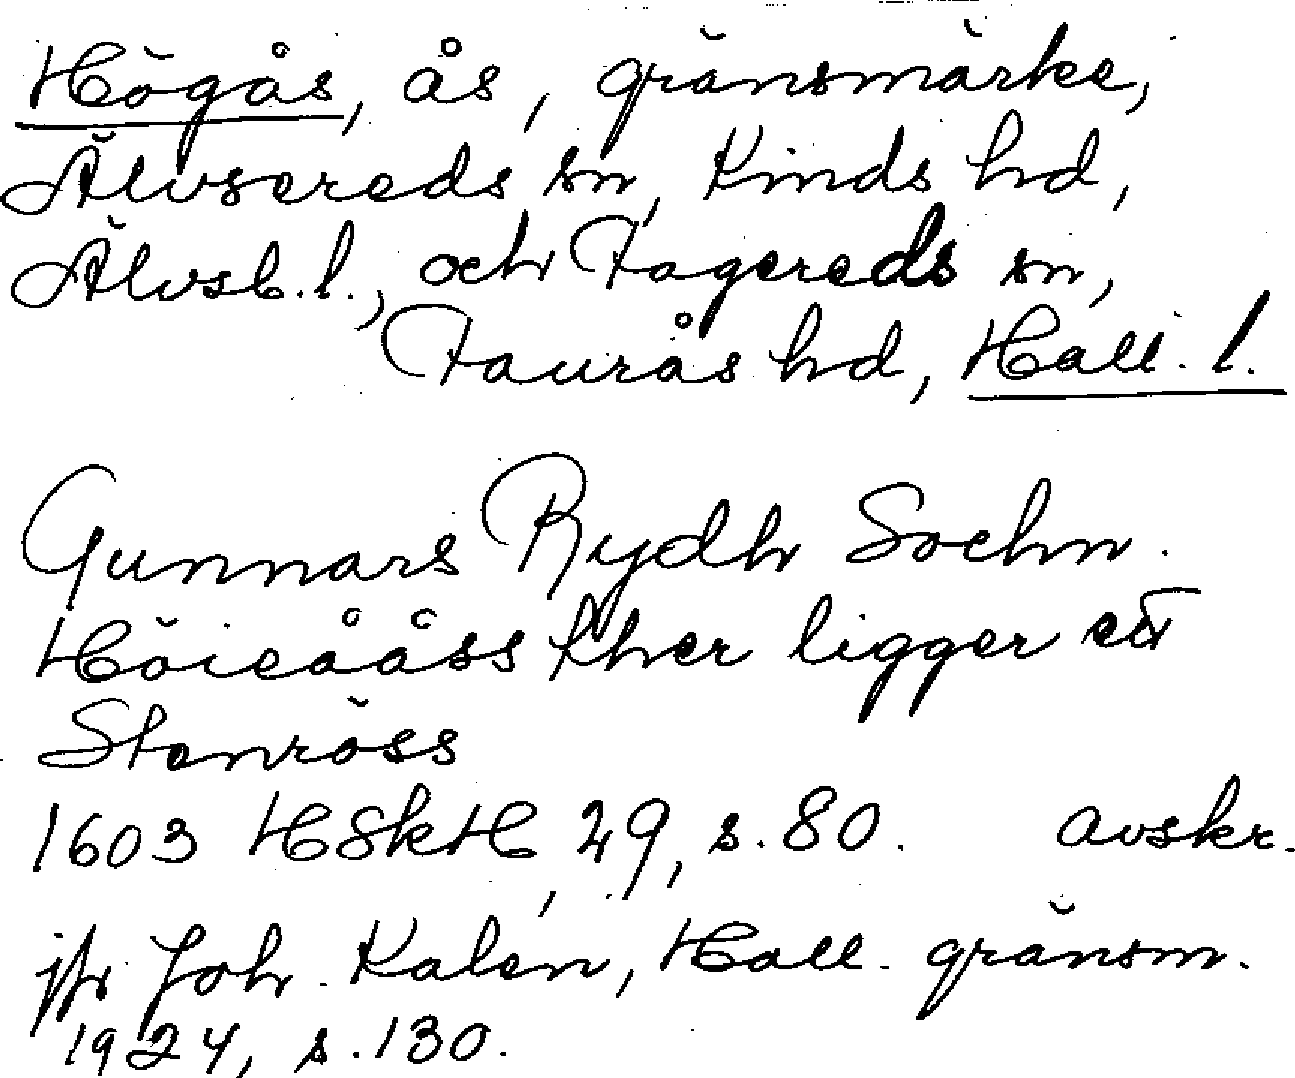 Högås, ås, gränsmärke,
Älvsereds sn, Kinds hd,
Älvsb. l., och Fagereds sn,
Faurås hd, Hall. l.
Gunnars Rydh Soehn.
Höieååss ther ligger ett
Stenröss
1603 HSkH, 29, s. 80. avskr.
jfr Joh. Kalén, Hall. gränsm.
1924, s. 130.